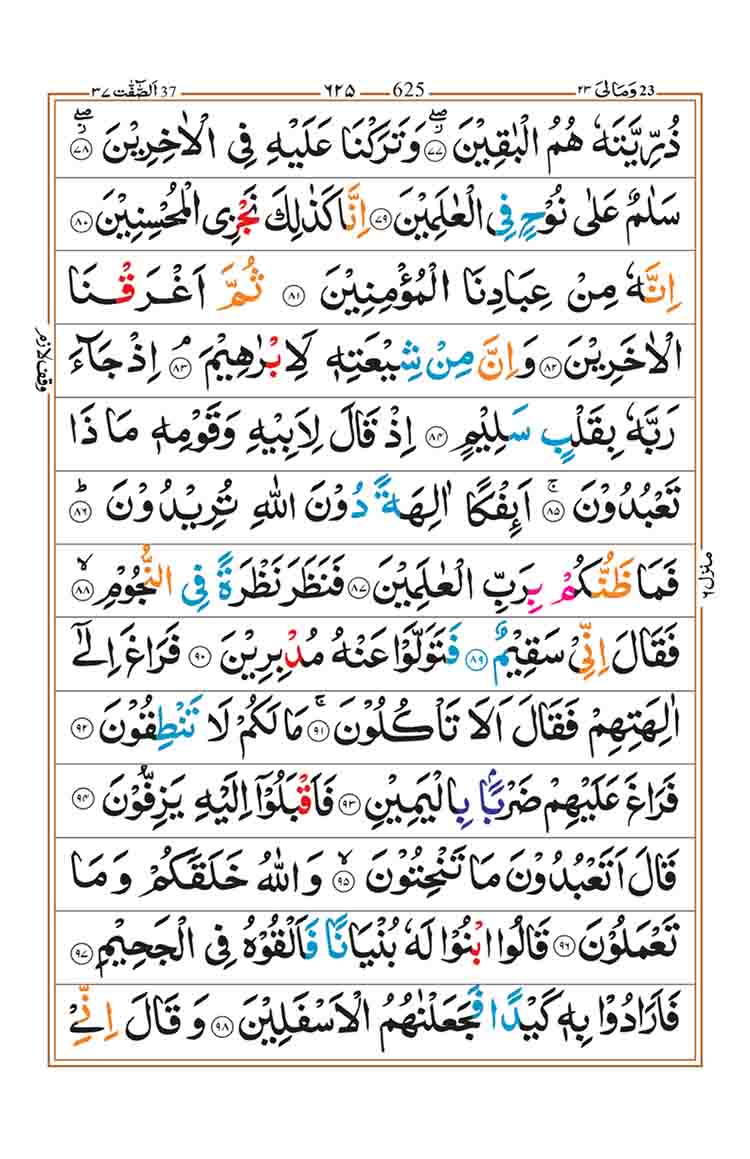 37 اَلصّٰٓفّٰت ٣٧ ٦٢٥ 625 23 وَمَالِىَ ٢٣
ذُرِّيَّتَهٗ هُمُ الْبٰقِيْنَ ۖ ۞٧٧ وَتَرَكْنَا عَلَيْهِ فِى الْاٰخِرِيْنَ ۖ ۞٧٨
سَلٰمٌ عَلٰى نُوْحٍ فِى الْعٰلَمِيْنَ ۞٧٩ اِنَّا كَذٰلِكَ نَجْزِى الْمُحْسِنِيْنَ ۞٨٠
اِنَّهٗ مِنْ عِبَادِنَا الْمُؤْمِنِيْنَ ۞٨١ ثُمَّ اَغْرَقْنَا
الْاٰخَرِيْنَ ۞٨٢ وَاِنَّ مِنْ شِيْعَتِهٖ لَاِبْرٰهِيْمَ ۘ ۞٨٣ اِذْ جَآءَ
وقف لازم
رَبَّهٗ بِقَلْبٍ سَلِيْمٍ ۞٨٤ اِذْ قَالَ لِاَبِيْهِ وَقَوْمِهٖ مَا ذَا
تَعْبُدُوْنَ ۚ ۞٨٥ اَئِفْكًا اٰلِهَةً دُوْنَ اللّٰهِ تُرِيْدُوْنَ ؕ ۞٨٦
فَمَا ظَنُّكُمْ بِرَبِّ الْعٰلَمِيْنَ ۞٨٧ فَنَظَرَ نَظْرَةً فِى النُّجُوْمِ ۙ ۞٨٨
منزل ٦
فَقَالَ اِنِّىْ سَقِيْمٌ ۞٨٩ فَتَوَلَّوْا عَنْهُ مُدْبِرِيْنَ ۞٩٠ فَرَاغَ اِلٰٓى
اٰلِهَتِهِمْ فَقَالَ اَلَا تَاْكُلُوْنَ ۚ ۞٩١ مَا لَكُمْ لَا تَنْطِقُوْنَ ۞٩٢
فَرَاغَ عَلَيْهِمْ ضَرْبًۢا بِالْيَمِيْنِ ۞٩٣ فَاَقْبَلُوْۤا اِلَيْهِ يَزِفُّوْنَ ۞٩٤
قَالَ اَتَعْبُدُوْنَ مَا تَنْحِتُوْنَ ۙ ۞٩٥ وَاللّٰهُ خَلَقَكُمْ وَمَا
تَعْمَلُوْنَ ۞٩٦ قَالُوا ابْنُوْا لَهٗ بُنْيَانًا فَاَلْقُوْهُ فِى الْجَحِيْمِ ۞٩٧
فَاَرَادُوْا بِهٖ كَيْدًا فَجَعَلْنٰهُمُ الْاَسْفَلِيْنَ ۞٩٨ وَقَالَ اِنِّىْ